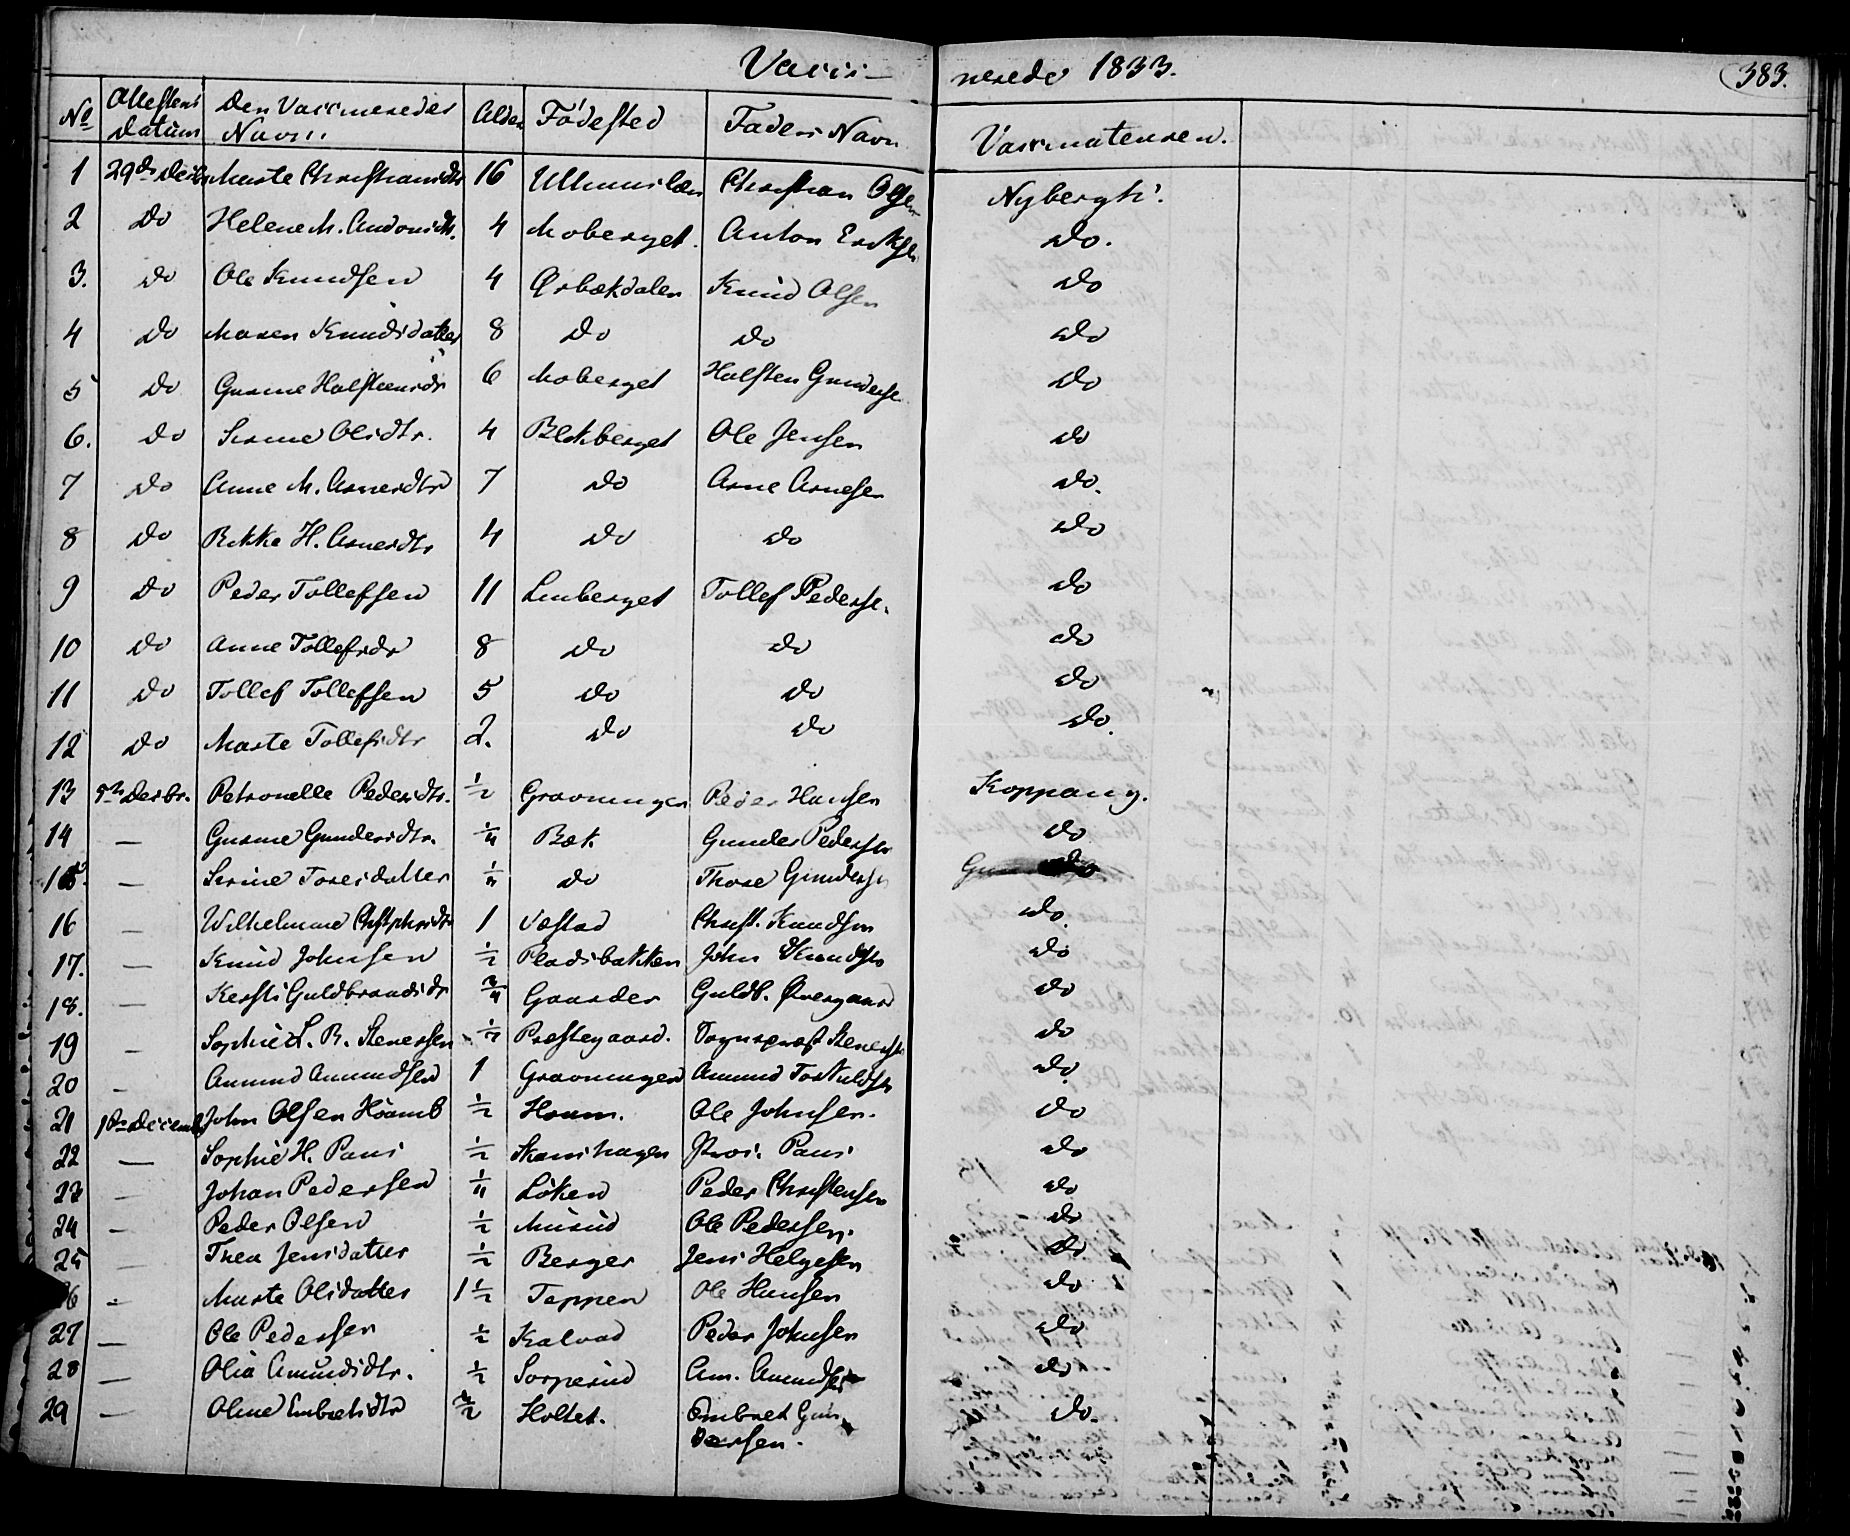 Vacci- nerede 1833. 383.
No Attestens Datum Den Vaccineredes Navn Alder Fødested Faders Navn Vaccinateuren.
1 29de Decbr Marte Christiansdtr 16 Christian Olsen Nybergh.
2 Do Helene M. Antonsdtr. 4 Moberget. Anton Eriksen Do.
3. Do Ole Knudsen 4 Ørbækdalen Knud Olsen Do
4 Do Maren Knudsdatter 8 Do Do Do
5 Do Gurine Halstensdr 6 Moberget Halsten Gunderse Do
6. Do Serine Olsdtr. 4 Blekberget Ole Jensen Do
7 Do Anne M. Arnesdtr 7 Do Arne Arnesen Do.
8 Do Rikke H. Arnesdtr 4 Do Do Do
9 Do Peder Tollefsen 11 Linberget Tollef Pederse. Do
10 Do Anne Tollefsdr 8 Do Do Do
11 Do Tollef Tollefsen 5 Do Do Do
12 Do Marte Tollefsdtr 2. Do Do Do.
13 Decbr. Petronelle Pedersdtr. ½ Gravningen Peder Hansen Koppang.
14 — Gurine Gundersdtr. ¼ Bæk. Gunder Pedersen Do
15. — Serine Toresdatter ¼ Do Thore Gundersen Do
16 — Wilhelmine Chstphrsdtr 1 Væstad Christ. Knudsen Do.
17. — Knud Johnsen ½ Pladsbakken John Knudsen Do
18. — Kersti Guldbrandsdr ¾ Gaarder Guldb. Øvergaard Do
19 — Sophie L. R. Stenersen ¼ Præstegaard. Sognepræst Stenersen Do
20 — Amund Amundsen 1 Gravningen Amund Torkildsen Do.
21 Decemb John Olsen Houmb ½ Houm. Ole Johnsen. Do
22 — Sophie H. Paus ½ Skarshagen Proc. Paus Do
23 — Johan Pedersen ¼ Løken Peder Christensen Do
24 — Peder Olsen ½ Musud Ole Pedersen. Do
25 — Thea Jensdatter ½ Berger Jens Helgesen Do
26 - Marte Olsdatter 1½ Tappen Ole Hansen Do
27 — Ole Pedersen ½ Kalvad Peder Johnsen Do
28 — Olia Amundsdtr. ½ Sorperud Am. Amundsen Do
29 — Oline Embretsdtr Holtet. Embret Gun Do.
dersen.